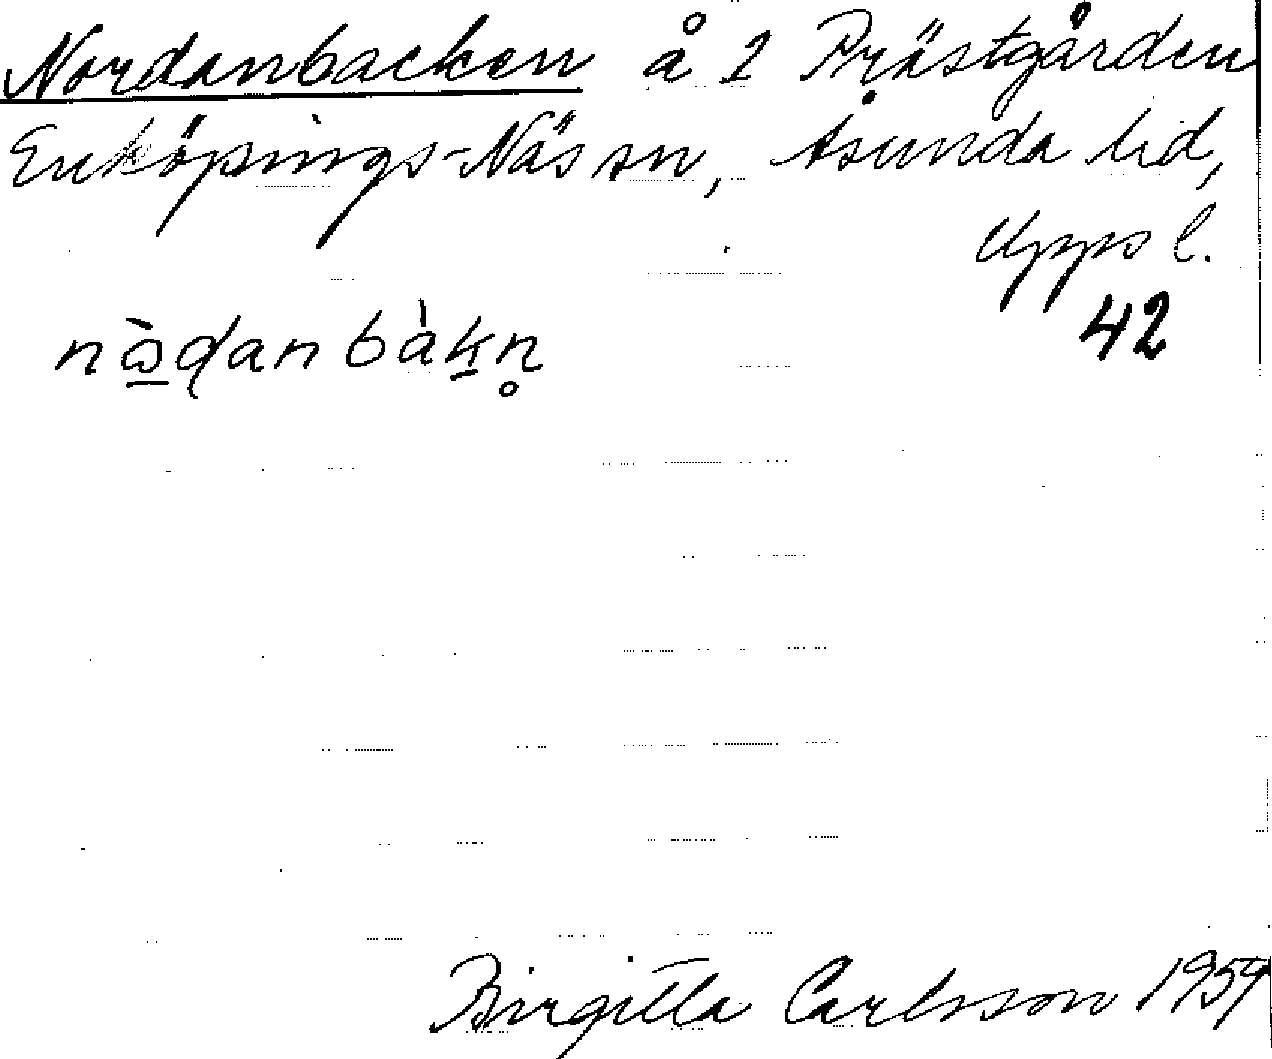 Nordanbacken å 1 Prästgården
Enköpings-Näs sn, Åsunda hd,
Upps l.
42
nὰ̱ɖanbàḵn̥
Birgitta Carlsson 1959